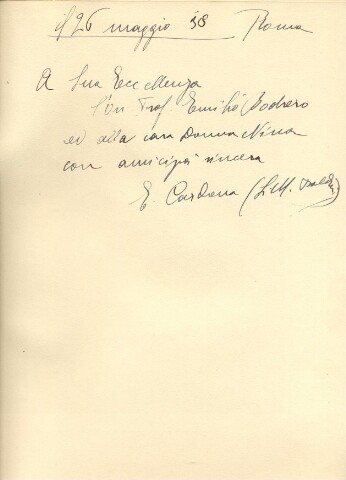 il 26 maggio '38 Roma
A Sua Eccellenza
l'on Prof Emilio Bodrero
ed alla cara Donna Nina
con amicizia sincera
E. Cardona (